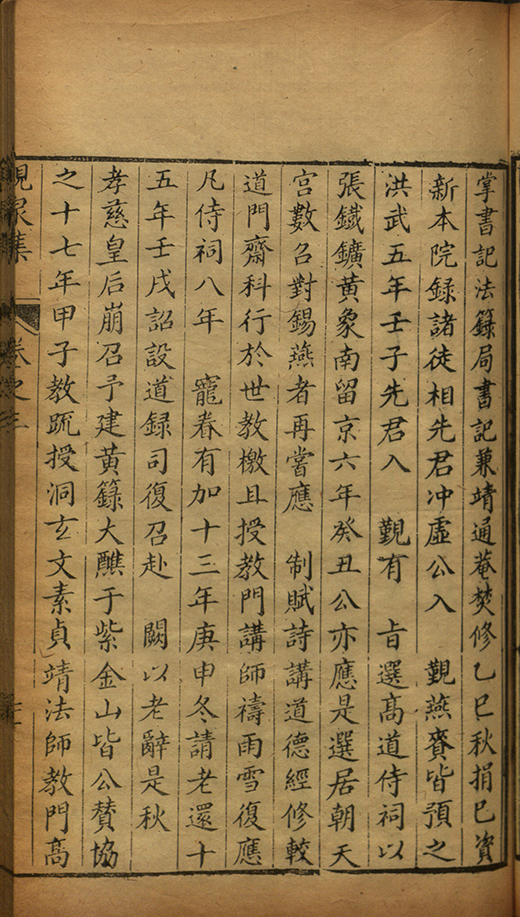 掌書記法籙局書記兼靖通菴焚修乙巳秋捐巳資
新本院録諸徒相先君冲虛公入　覲燕賚皆預之
洪武五年壬子先君入　覲有　旨選髙道侍祠以
張鐵鑛黄象南留京六年癸丑公亦應是選居朝天
宫數召對錫燕者再嘗應　制賦詩講道德經修較
道門齋科行於世教檄且授教門講師禱雨雪復應
凡侍祠八年　寵眷有加十三年庚申冬請老還十
五年壬戌詔設道録司復召赴　闕以老辭是秋
孝慈皇后崩召予建黄籙大醮于紫金山皆公賛協
之十七年甲子教䟽授洞玄文素貞靖法師教門髙
峴泉集
卷之三